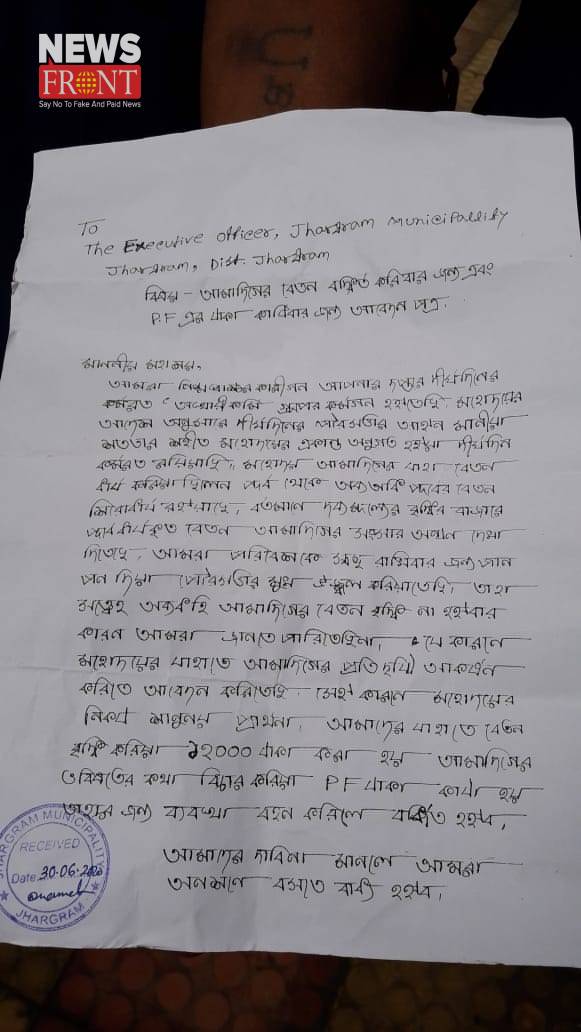 NEWS
FRONT
Say No To Fake And Paid News
To
The Executive Officer, Jhargram Municipality
Jhargram, Dist. Jhargram
বিষয় - আমাদিগের বেতন বর্দ্ধিত করিবার জন্য এবং
P.F এর টাকা কাটিবার জন্য আবেদন পত্র.
মাননীয় মহাশয়,
আমরা নিম্নস্বাক্ষরকারীগন আপনার দপ্তর দীর্ঘদিনের
কর্মরত অস্থায়ীকর্মী কর্মীগন হইতেছি. মহোদয়ের
আদেশ অনুসারে দীর্ঘদিনের পৌরসভার
সততার সহিত মহোদয়ের একান্ত অনুগত হইয়া দীর্ঘদিন
কর্মরত রহিয়াছি. মহোদয় আমাদিগের যাহা বেতন
ধার্য করিয়া ছিলেন পূর্ব থেকে অদ্যাবধি বেতন
রহিয়াছে, বর্তমানে দ্রব্যমূল্যের বৃদ্ধির বাজারে
বেতন আমাদিগের সংসার অভাব দেখা
দিতেছে. আমরা পরিবেশকে রাখিবার জন্য প্রান
পন দিয়া পৌরসভার মুখ উজ্জ্বল করিয়াতেছি, তাহা
সত্ত্বেও আমাদিগের বেতন বৃদ্ধি না হইবার
কারন আমরা জানতে পারিতেছিনা, যে কারনে
মহোদয়ের যাহাতে আমাদিগের প্রতি দৃষ্টি আকর্ষন
করিতে আবেদন করিতেছি. সেই কারনে মহোদয়ের
নিকট প্রার্থনা, আমাদের যাহাতে বেতন
বৃদ্ধি করিয়া ১২০০০ টাকা করা হয় আমাদিগের
ভবিষ্যতের কথা বিচার করিয়া PF টাকা কাটা হয়
তাহার জন্য ব্যবস্থা করিলে বাধিত হইব.
আমাদের দাবিনা মানলে আমরা
অনশনে বসতে বাধ্য হইব.
JHARGRAM MUNICIPALITY
RECEIVED
Date 30-06-2020
JHARGRAM